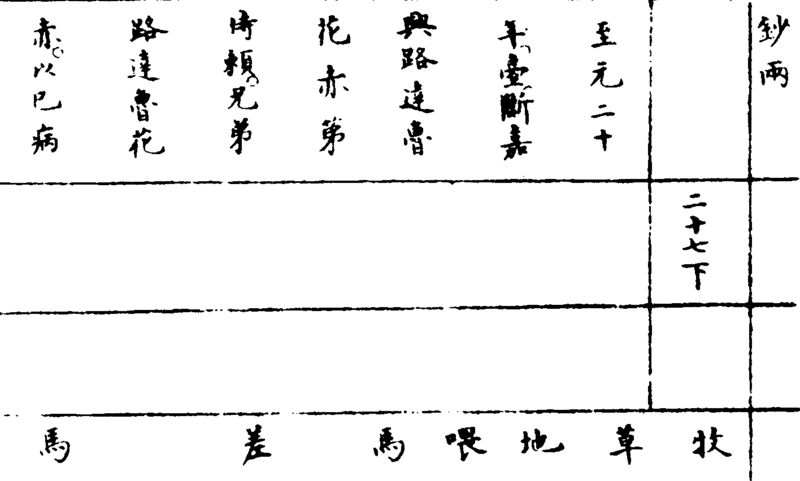 鈔兩
二十七下
至元二十
年臺斷嘉
興路達魯
花赤第
倚賴兄弟
路達魯花
赤以已病
牧草地喂馬差馬